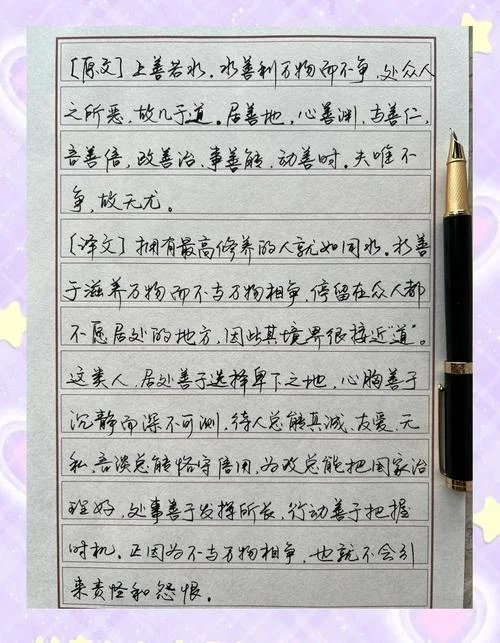 [原文]上善若水。水善利万物而不争,处众人
之所恶,故几于道。居善地,心善渊,与善仁,
言善信,政善治,事善能,动善时。夫唯不
争,故无尤。
[译文]拥有最高修养的人就如同水。水善
于滋养万物而不与万物相争,停留在众人都
不愿居处的地方,因此其境界很接近"道"。
这类人,居处善于选择卑下之地,心胸善于
沉静而深不可测,待人总能真诚、友爱、无
私,言谈总能恪守信用,为政总能把国家治
理好,处事善于发挥所长,行动善于把握
时机。正因为不与万物相争,也就不会引
来责怪和怨恨。